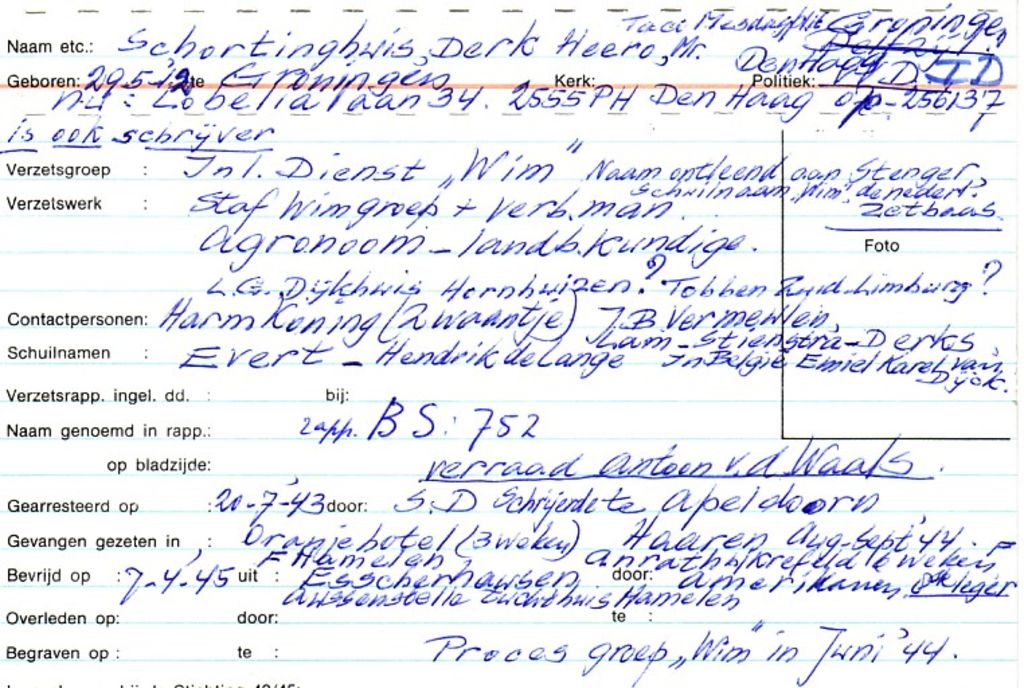 Taci Mesdagflit Groningen
Naam etc.: Schortinghuis, Derk Heero, Mr. Delfzijl.
Den Haag
Geboren: 29-5-12 te Groningen Kerk: Politiek: VVD ID
n.u: Lobelialaan 34. 2555 PH Den Haag op-256137
is ook schrijver
Verzetsgroep : Inl. Dienst „Wim” Naam ontleend aan Stenger,
schuilnaam „Wim”, de nederl.
Verzetswerk : Staf Wimgroep + verb.man zetbaas.
Agronoom - landb.kundige.
Foto
L.G. Dijkhuis Hornhuizen? Tobben Zuid-Limburg?
Contactpersonen: Harm Koning (2 waantje) J.B Vermeulen,
Lam-Stienstra-Derks,
Schuilnamen : Evert - Hendrik de Lange In België Emiel Karel van
Dijck.
Verzetsrapp. ingel. dd. : bij:
Naam genoemd in rapp.: rapp. BS: 752
op bladzijde: verraad Antoon v.d Waals.
Gearresteerd op : 20-7-'43 door: S.D Schrijende te Apeldoorn
Gevangen gezeten in : Oranjehotel (3 weken) Haaren Aug-Sept '44.
Hamelen, Anrath/Krefeld 6 weken
Bevrijd op : 7-4-'45 uit : Esscherhausen door: Amerikanen, 8ste leger
Aussenstelle Zuchthuis Hamelen
Overleden op: door: te :
Begraven op : te : Proces groep „Wim” in Juni '44.